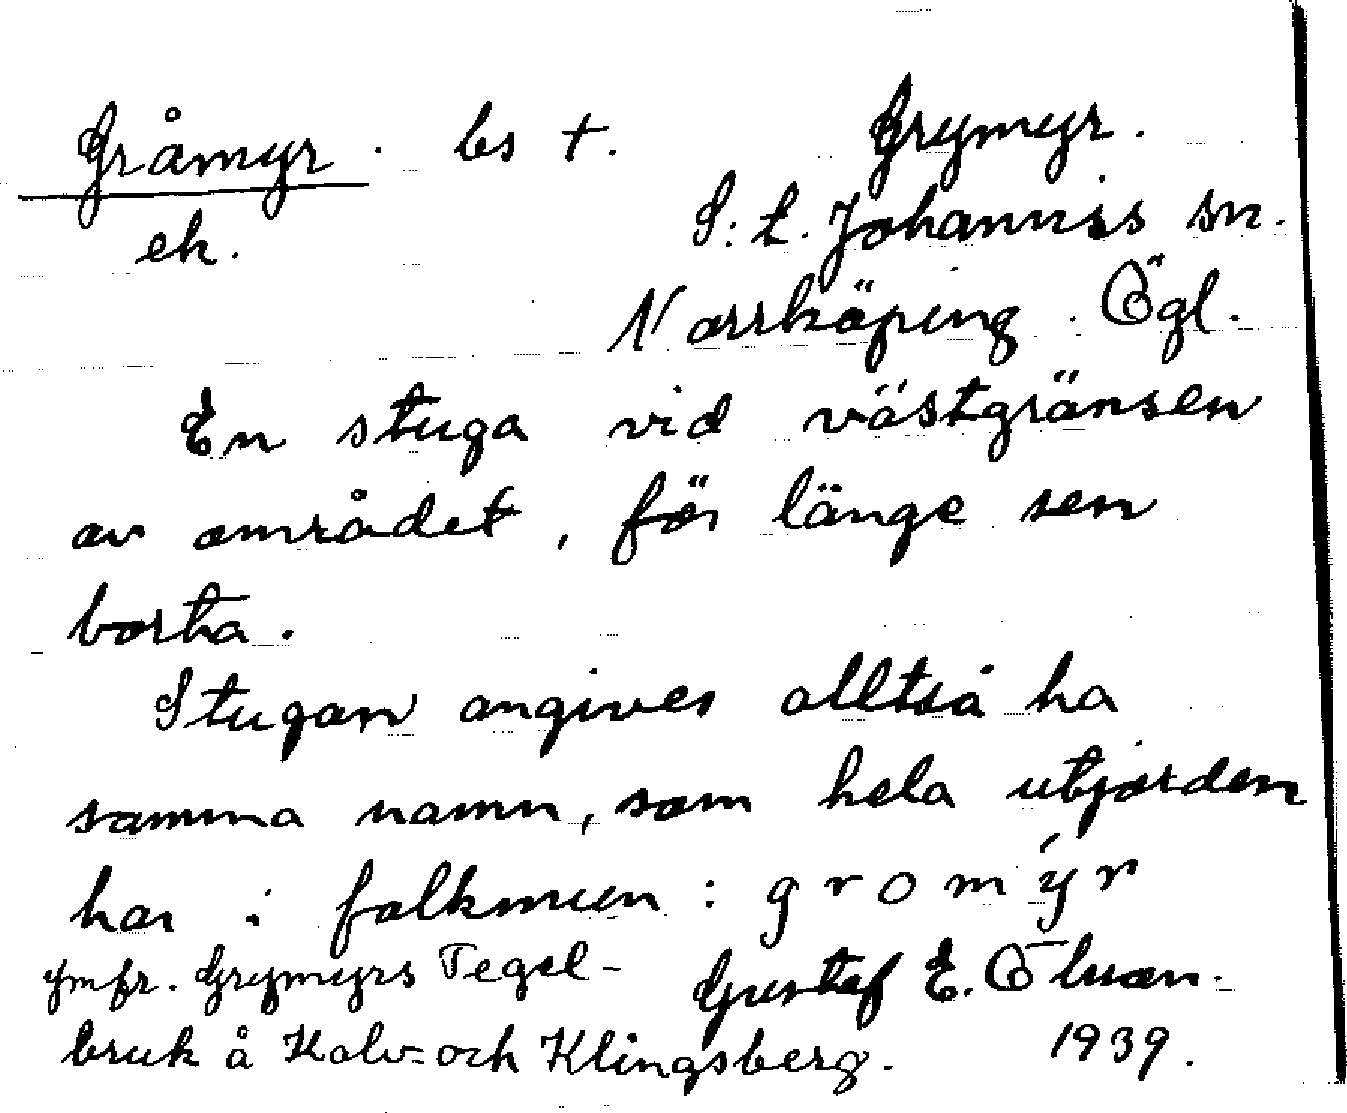 Gråmyr. bs †. Grymyr.
ek. S:t. Johannis sn.
Norrköping. Ögl.
En stuga vid västgränsen
av området, för länge sen
borta.
Stugan angives alltså ha
samma namn, som hela utjorden
har i folkmun: gromýr
Jmfr. Grymyrs Tegel- Gustaf E. Ölwen.
bruk å Kalv- och Klingsberg. 1939.